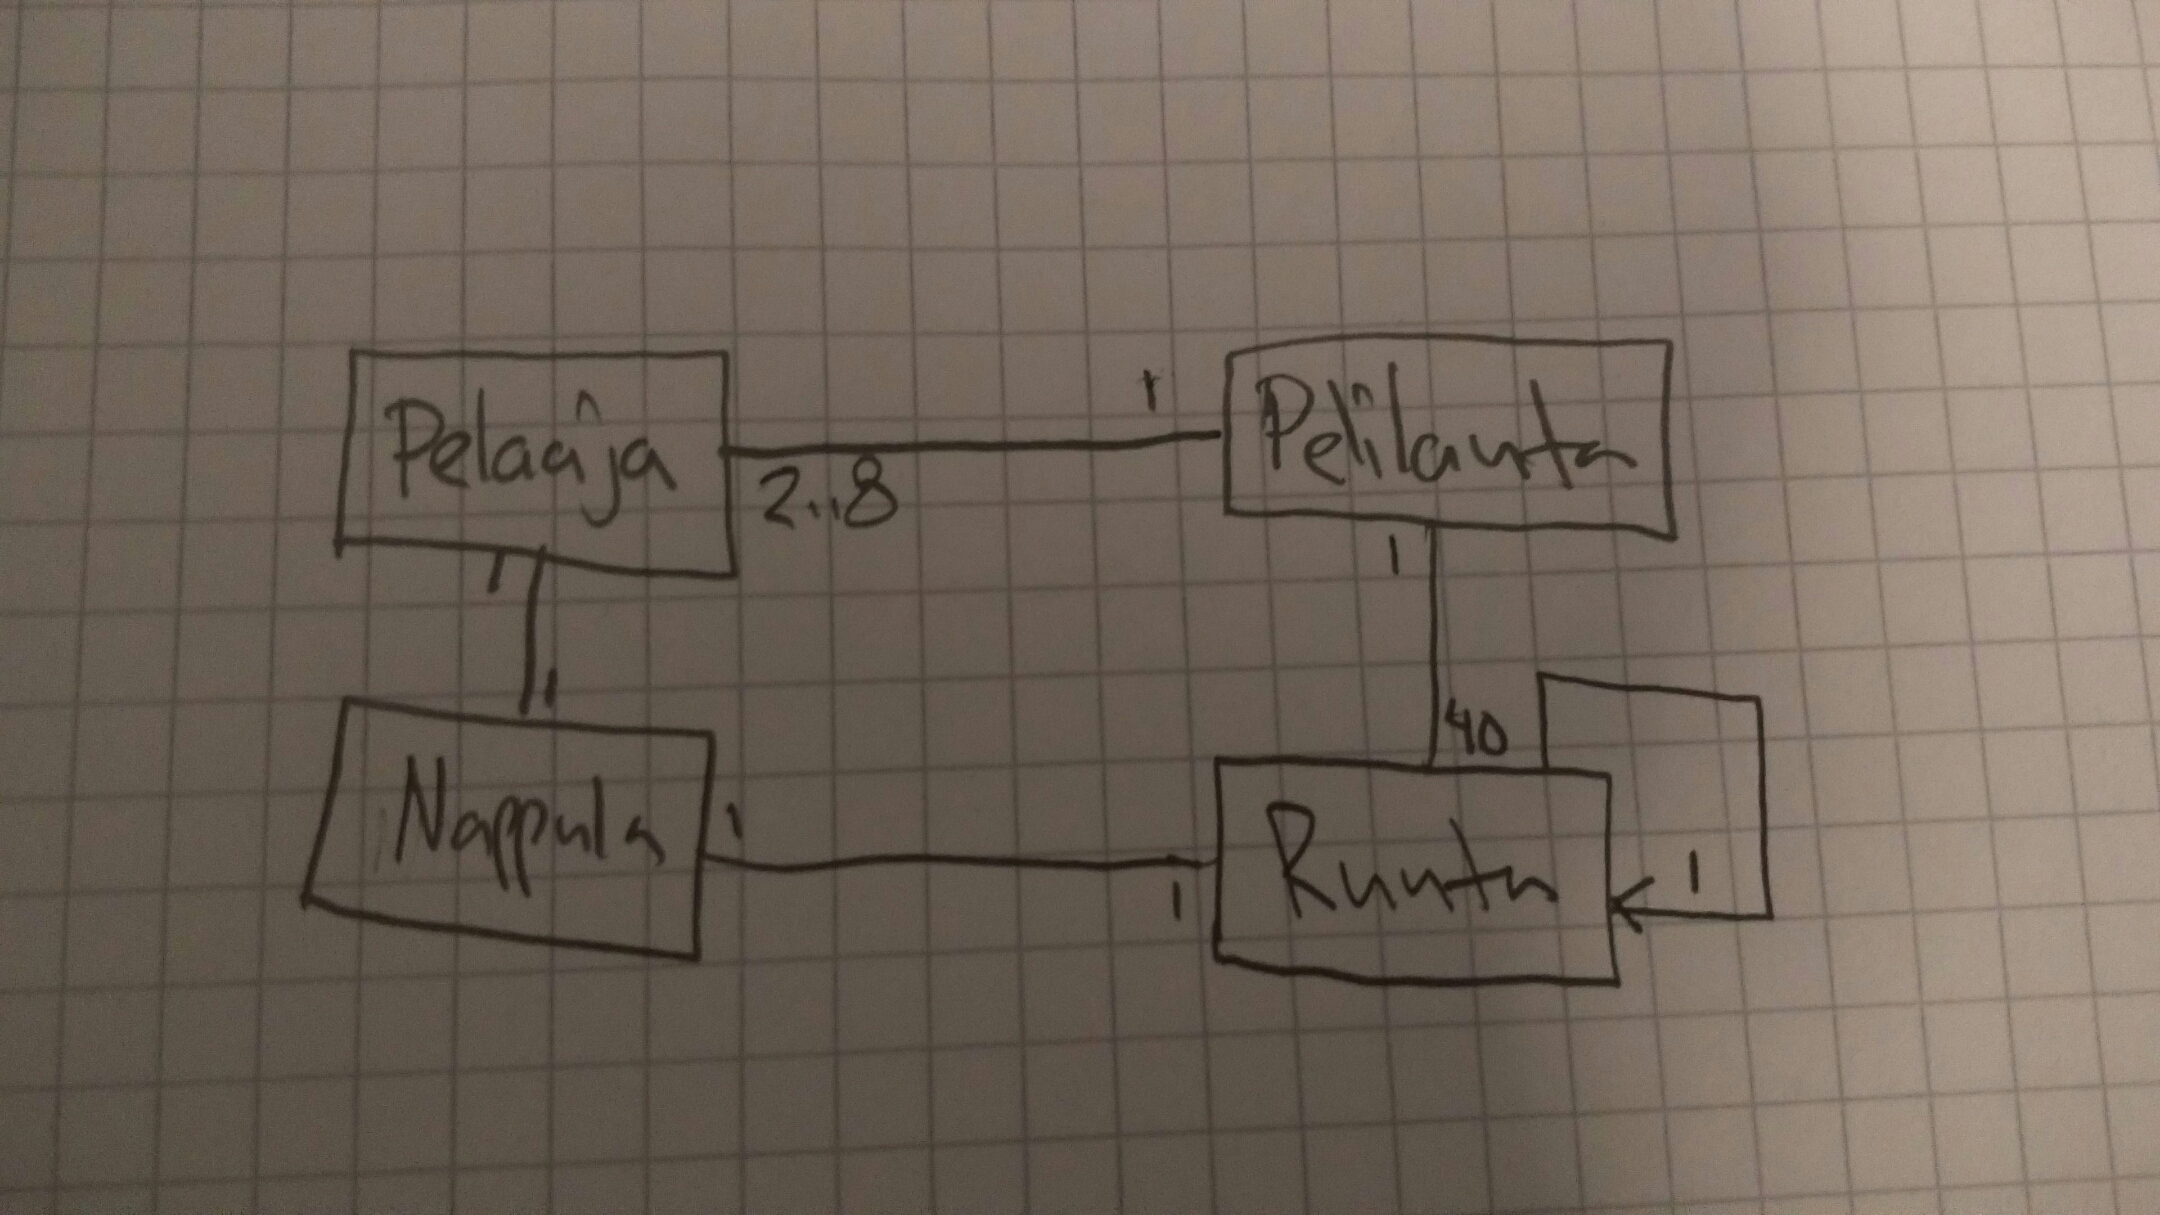 Pelaaja
1
Pelilauta
2..8
1
1
1
40
Nappula
1
Ruutu
1
1